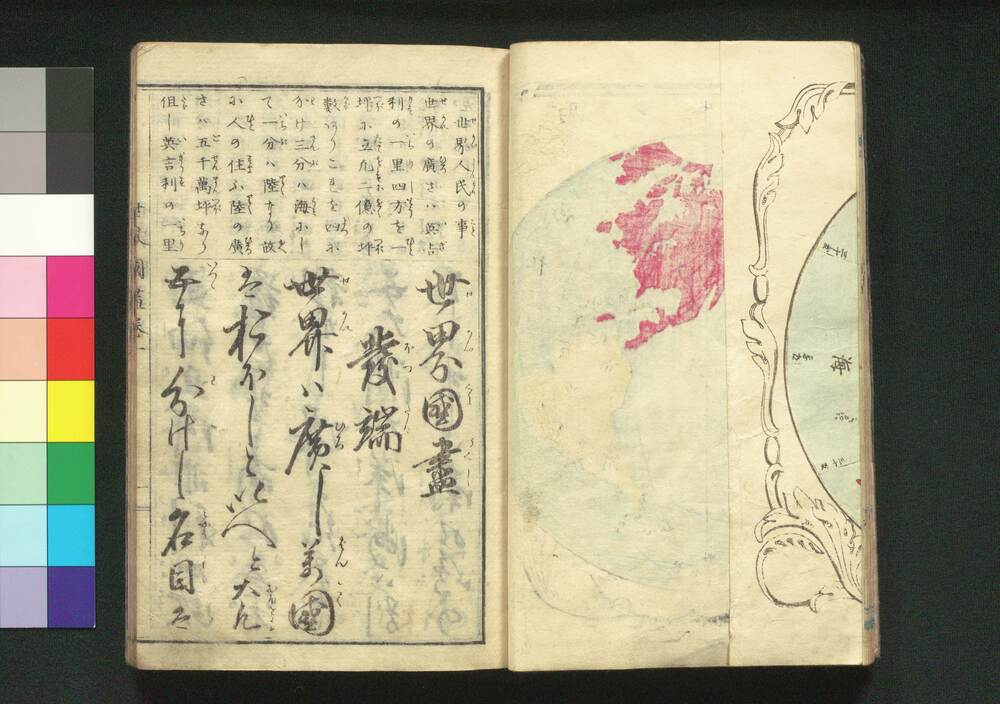 世界人民の事
世界の廣さハ英吉
利の一里四方を一
坪に立凡二億の坪
數ありこれを四に
分け三分ハ海にし
て一分ハ陸なり故
に人の住ふ陸の廣
さハ五千萬坪なり
但し英吉利の一里
世界國盡
發端
世界ハ廣し萬國
はおほしといへど大凡
五に分けし名目は
海